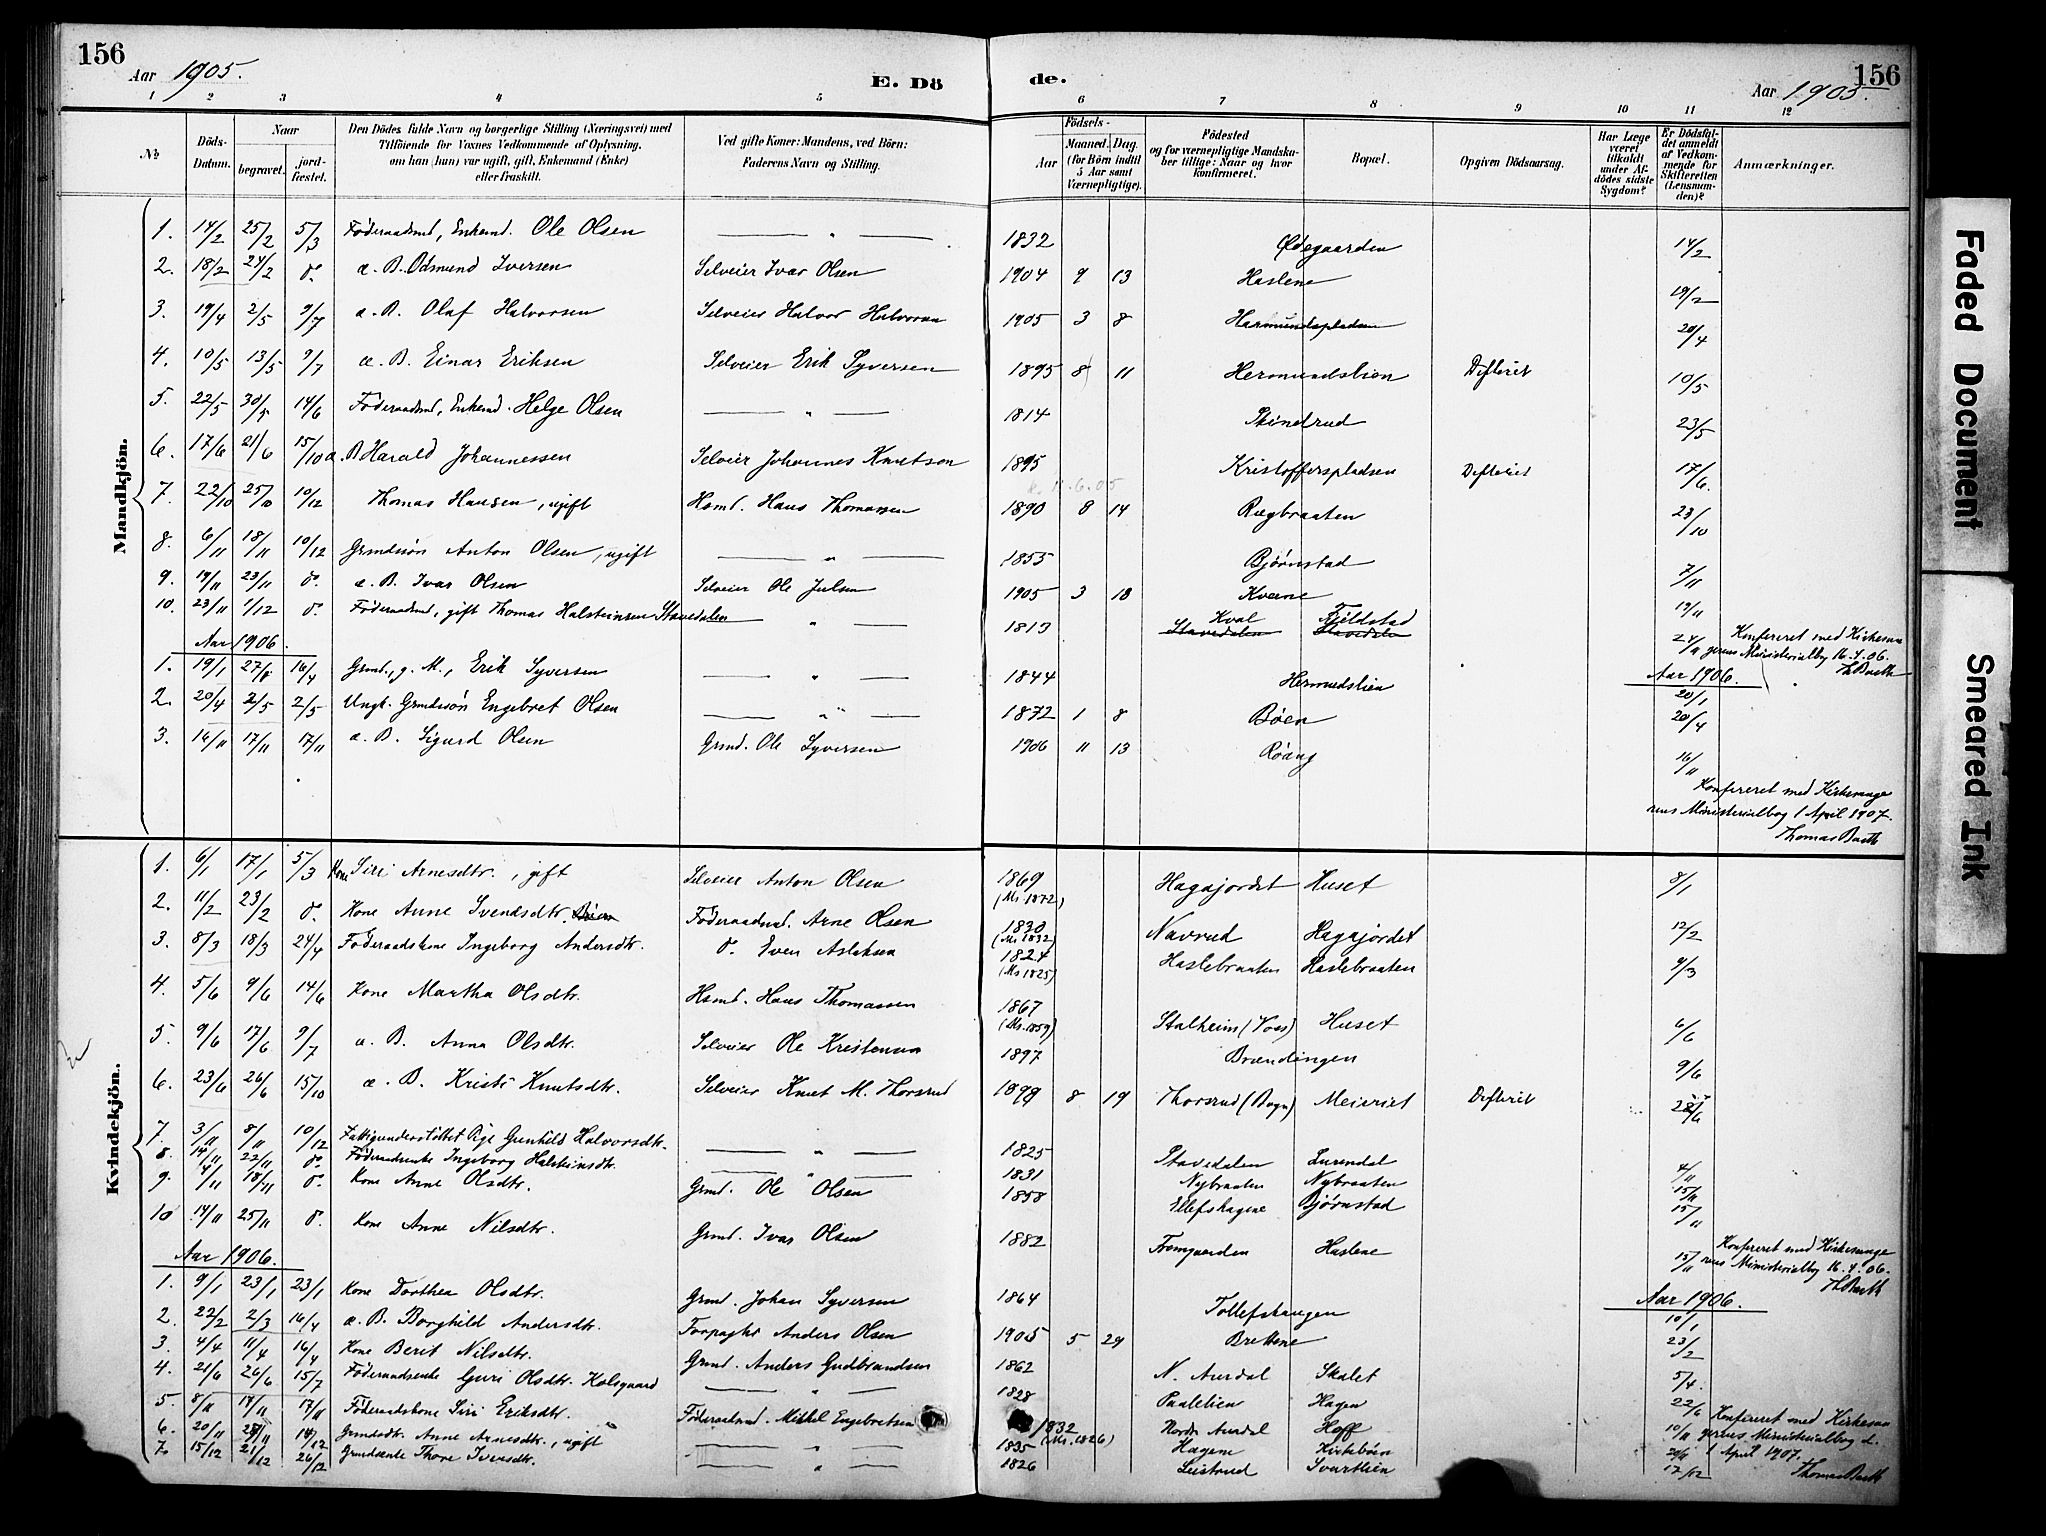 156
Aar 1905.
E. Dö
de.
Aar 1905.
156
1 2 3 4 5 6 7 8 9 10 11 12
№
Döds-Datum.
Naar
begravet.
jord-fæstet.
Den Dödes fulde Navn og borgerlige Stilling (Næringsvei) med
Tilföiende for Voxnes Vedkommende af Oplysning,
om han (hun) var ugift, gift, Enkemand (Enke)
eller fraskilt.
Ved gifte Koner: Mandens, ved Börn:
Faderens Navn og Stilling.
Födsels-
Aar
Maaned. Dag.
(for Börn indtil
5 Aar samt
Værnepligtige).
Födested
og for værnepligtige Mandska-
ber tillige: Naar og hvor
konfirmeret.
Bopæl.
Opgiven Dödsaarsag.
Har Læge
været
tilkaldt
under Af-
dödes sidste
Sygdom?
Er Dödsfal-
det anmeldt
af Vedkom-
mende for
Skifteretten
(Lensman-
den)?
Anmærkninger.
Mandkjön.
1. 14/2 25/2 5/3 Föderaadsmd, Enkemd. Ole Olsen — " — 1832 Ødegaarden 14/2
2. 18/2 24/2 d. æ. B. Odmund Iversen Selveier Ivar Olsen 1904 9 13 Haslene 19/2
3. 19/4 2/5 9/7 æ. B. Olaf Halvorsen Selveier Halvor Halvorsen 1905 3 8 Harmundspladsen 20/4
4. 10/5 13/5 9/7 æ. B. Einar Eriksen Selveier Erik Syversen 1895 8 11 Hermundslien Difterit 10/5
5. 22/5 30/5 14/6 Föderaadsmd, Enkemd. Helge Olsen — " — 1814 Skindrud 23/5
6. 17/6 21/6 15/10 æ. B. Harald Johannessen Selveier Johannes Knutson 1895 Kristofferspladsen Difterit 17/6
7. 22/10 25/10 10/12 Thomas Hansen, ugift Hsmd. Hans Thomassen 1890 8 14 Rægbraaten 23/10
8. 6/11 18/11 10/12 Grmdssøn Anton Olsen, ugift — " — 1855 Bjørnstad 7/11
9. 19/11 23/11 d. æ. B. Ivar Olsen Selveier Ole Julsen 1905 3 18 Kværne 19/11
10. 23/11 1/12 d. Föderaadsmd, gift Thomas Halsteinsen Stavedalen — " — 1813 Kval Stavedalen Fjeldstad Stavedalen 24/11
Konfereret med Kirkesan
gerens Ministerialbog 16.4.06.
Th Barth
Aar 1906.
Aar 1906.
1. 19/1 27/1 16/4 Grmd., g. M., Erik Syversen — " — 1844 Hermundslien 20/1
2. 20/4 2/5 2/5 Ungk. Grmdssøn Engebret Olsen — " — 1872 1 8 Bøen 20/4
3. 16/11 17/11 17/11 æ. B. Sigurd Olsen Grmd. Ole Syversen 1906 11 13 Røang 16/11
Konfereret med Kirkesange
rens Ministerialbog 1 April 1907.
Thomas Barth
Kvindekjön.
1. 6/1 17/1 5/3 Kone Siri Arnesdtr., gift Selveier Anton Olsen 1869 (Ms. 1872) Hagajordet Huset 8/1
2. 11/2 23/2 d. Kone Anne Svendsdtr. Föderaadsmd. Arne Olsen 1830 (Ms. 1832) Navrud Hagajordet 12/2
3. 8/3 18/3 24/4 Föderaadskone Ingeborg Andersdtr. d. Even Aslaksen 1824 (Ms. 1825) Haslebraaten Haslebraaten 9/3
4. 5/6 9/6 14/6 Kone Martha Olsdtr. Hsmd. Hans Thomassen 1867 (Ms. 1859) Stalheim (Voss) Huset 6/6
5. 9/6 17/6 9/7 æ. B. Anna Olsdtr. Selveier Ole Kristensen 1897 Brændingen 9/6
6. 23/6 26/6 15/10 æ. B. Kristi Knutsdtr. Selveier Knut M. Thorsrud 1899 8 19 Thorsrud (Bagn) Meieriet Difterit
7. 3/11 8/11 10/12 Fattigunderstöttet Pige Gunhild Halvorsdtr. — " — 1825 Stavedalen Lurendal 4/11
8. 14/11 22/11 d. Föderaadsenke Ingeborg Halsteinsdtr. — " — 1831 Nybraaten Nybraaten 15/11
9. 4/11 18/11 d. Kone Anne Olsdtr. Grmd. Ole Olsen 1858 Ellefshagene Bjørnstad 15/11
10 14/11 25/11 d. Kone Anne Nilsdtr. Grmd. Ivar Olsen 1882 Framgaarden Haslene 15/11
Konfereret med Kirkesange
rens Ministerialbg 16.4.06.
Th Barth
Aar 1906.
Aar 1906.
1. 9/1 23/1 23/1 Kone Dorthea Olsdtr. Grmd. Johan Syversen 1864 Tollefshaugen 10/1
2. 22/2 2/3 16/4 æ. B. Borghild Andersdtr. Forpagter Anders Olsen 1905 5 29 Brettene 23/2
3. 4/4 11/4 16/4 Kone Berit Nilsdtr. Grmd. Anders Gudbrandsen 1862 N. Aurdal Skalet 5/4.
4. 21/6 26/6 15/7 Föderaadsenke Guri Olsdtr. Kolsgaard — " — 1828 Paalelien Hagen 22/6
5. 8/11 17/11 17/11 Föderaadskone Siri Eriksdtr. Föderaadsmd. Mikkel Engebretsen 1832 (Ms. 1826) Nordr. Aurdal Hoff 10/11
6. 20/11 28/11 14/12 Grmdsdtr. Anne Arnesdtr., ugift — " — 1835 Hagene Kirkebøen 20/11
7. 15/12 21/12 26/12 Grmdsenke Thore Iversdtr. — " — 1826 Leistrud Svartlien 17/12
Konfereret med Kirkesan
gerens Ministerialbog d.
1 April 1907.
Thomas Barth
Faded Document
Smeared Ink